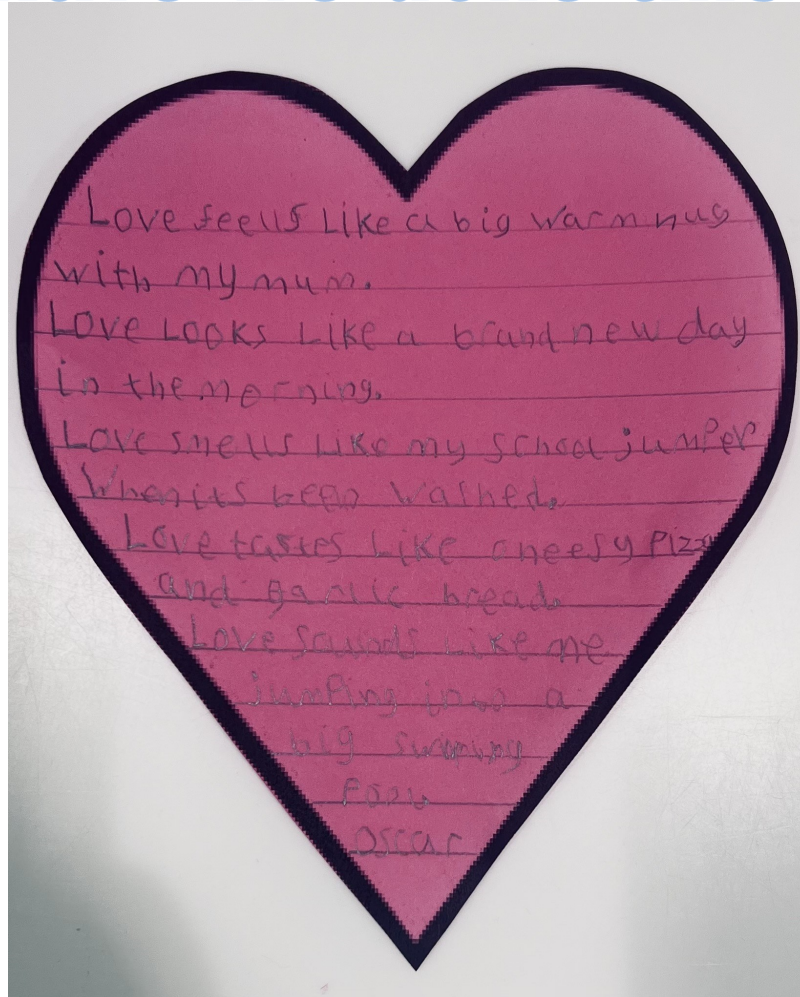 Love feells like a big warm hug
with my mum.
Love Looks Like a brand new day
in the morning.
Love smells Like my school jumper
When its been washed.
Love tastes Like cheesy Pizza
and garlic bread.
Love sounds Like me
jumping into a
big swimming
Pool
Oscar